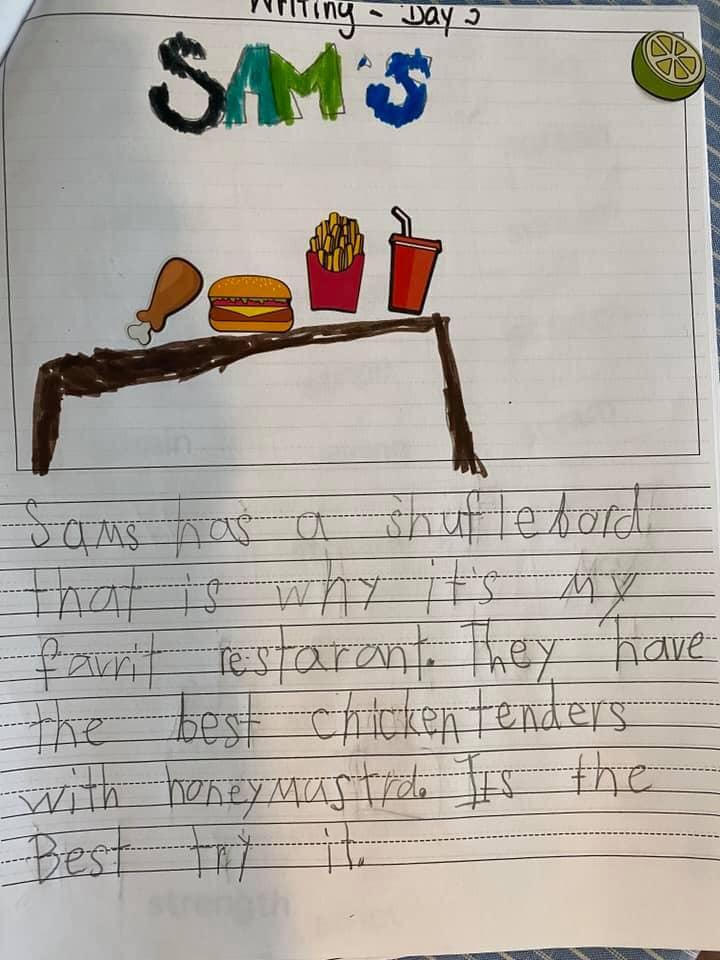 Writing - Day
SAM'S
Sams has a shuflebord
that is why it's My
favrit restarant. They have
the best chicken tenders
with honeymustrd. Its the
Best try it.
strength